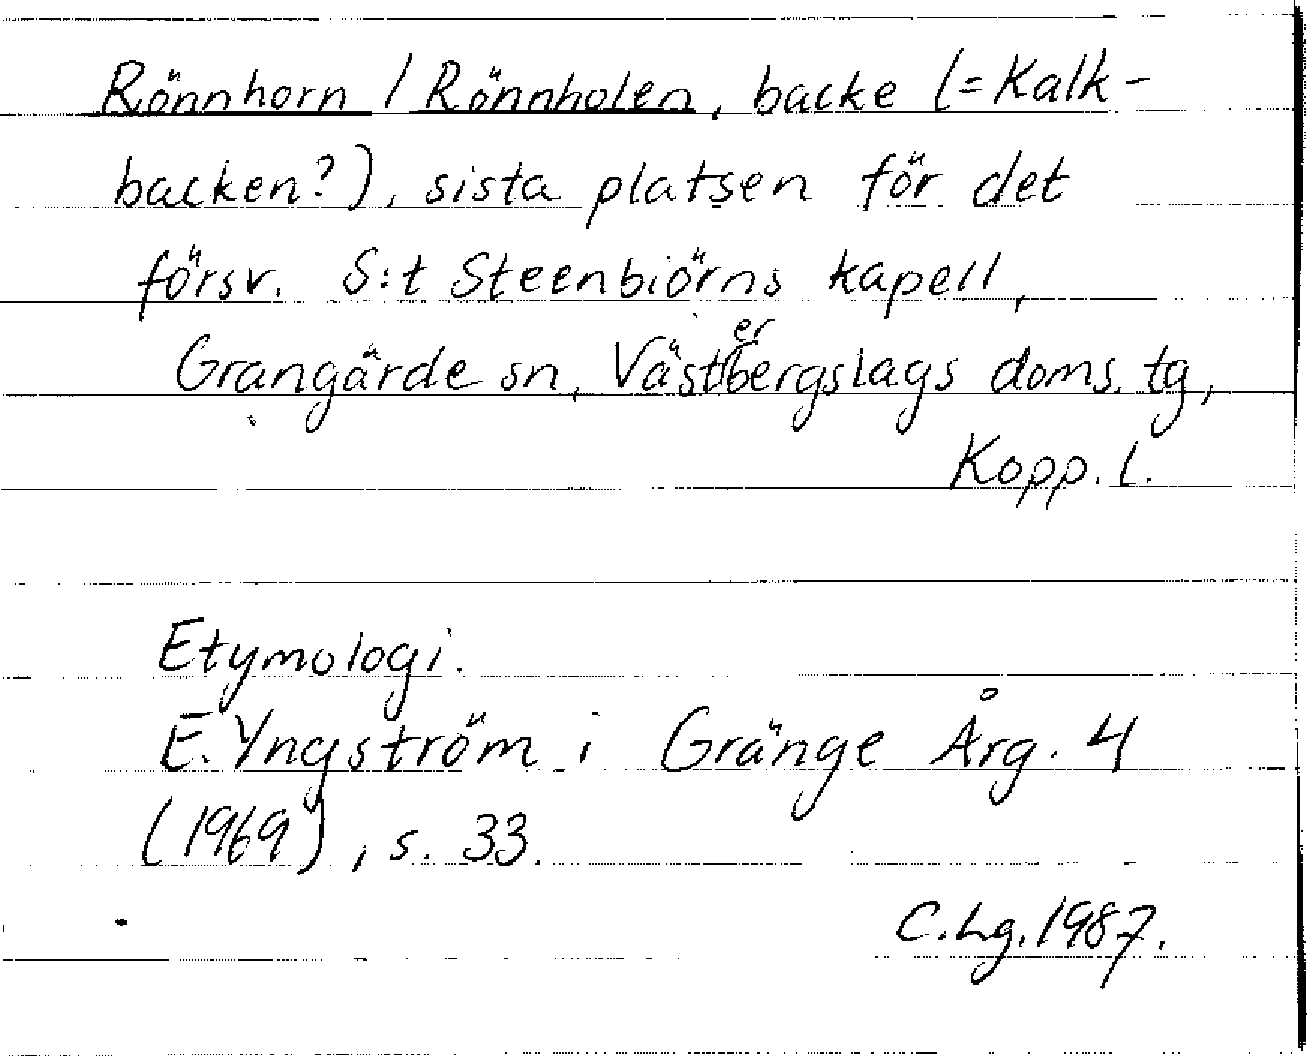 Rönnhorn / Rönnholen, backe (=Kalk-
backen?), sista platsen för det
försv. S:t Steenbiörns kapell,
Grangärde sn, Västerbergslags doms. tg,
Kopp. l.
Etymologi.
E. Yngström i Gränge Årg. 4
(1969), s. 33.
C.Lg. 1987.